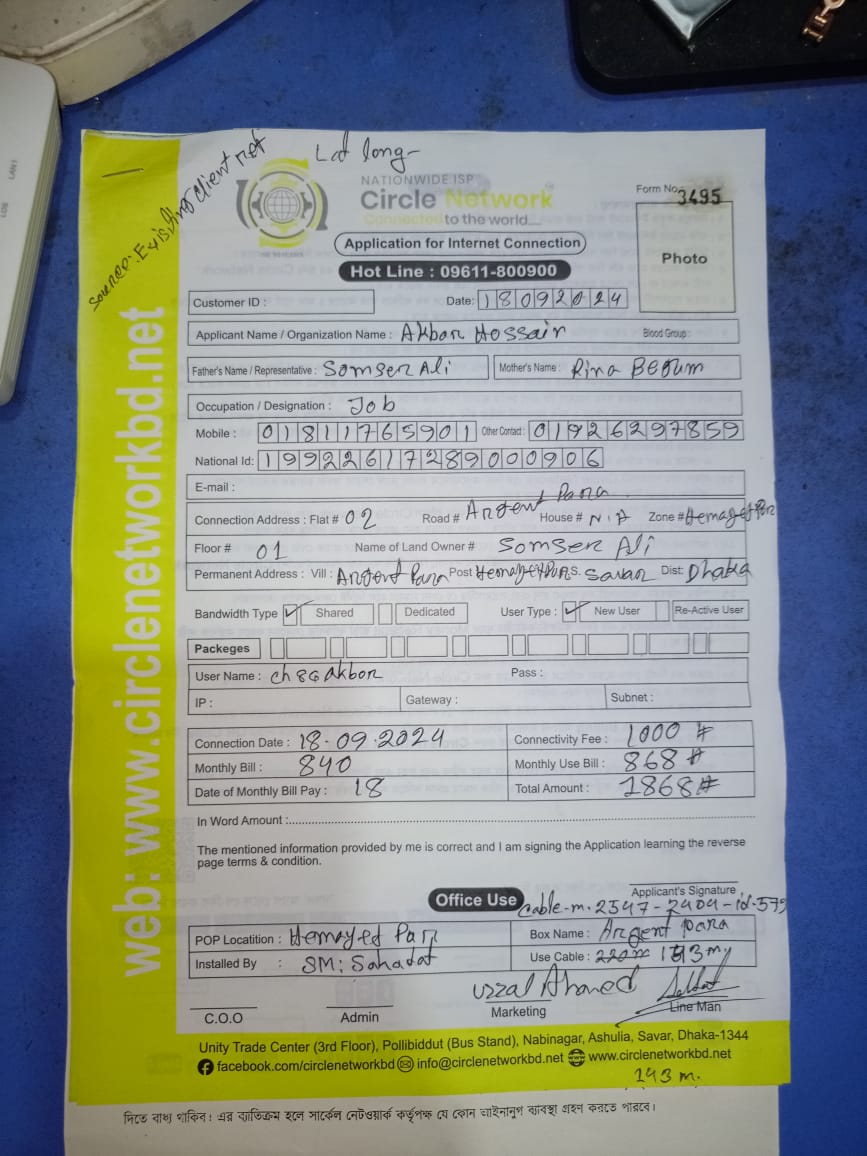 Lat long-
Source: Existing client net
NATIONWIDE ISP
Circle Network
Connected to the world...
Form No. 3495
Application for Internet Connection
Photo
Hot Line : 09611-800900
Customer ID :
Date: 18092024
Applicant Name / Organization Name : Akbor Hossain Blood Group :
Father's Name / Representative : Somser Ali Mother's Name : Rina Begum
Occupation / Designation : Job
Mobile : 01811765901 Other Contact : 01926297859
National Id: 19922617289000906
E-mail :
Connection Address : Flat # 02 Road # Argent Para House # N.A Zone # Hemayetpur
Floor # 01 Name of Land Owner # Somser Ali
Permanent Address : Vill : Argent Para Post Hemayetpur P.S. Savar Dist: Dhaka
Bandwidth Type Shared Dedicated User Type : New User Re-Active User
Packeges
User Name : ch8Gakbor Pass :
IP : Gateway : Subnet :
Connection Date : 18-09-2024 Connectivity Fee : 1000 #
Monthly Bill : 840 Monthly Use Bill : 868 #
Date of Monthly Bill Pay : 18 Total Amount : 1868 #
In Word Amount :
The mentioned information provided by me is correct and I am signing the Application learning the reverse
page terms & condition.
Applicant's Signature
Office Use
Cable-m. 2547-2404-id-579
POP Locatition : Hemayed Parr Box Name : Argent para
Installed By : SM: Sahadat Use Cable : 143 my
Uzzal Ahamed
C.O.O Admin Marketing Line Man
Unity Trade Center (3rd Floor), Pollibiddut (Bus Stand), Nabinagar, Ashulia, Savar, Dhaka-1344
facebook.com/circlenetworkbd info@circlenetworkbd.net www.circlenetworkbd.net
143 m.
web: www.circlenetworkbd.net
দিতে বাধ্য থাকিব। এর ব্যতিক্রম হলে সার্কেল নেটওয়ার্ক কর্তৃপক্ষ যে কোন আইনানুগ ব্যবস্থা গ্রহণ করতে পারবে।
LAN1